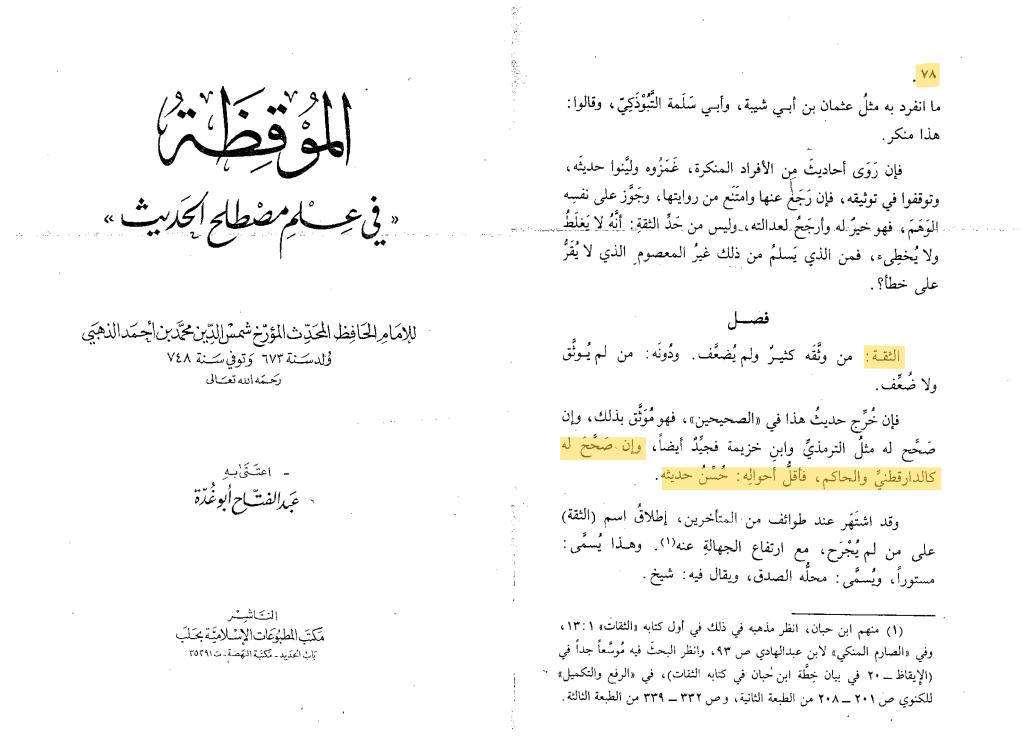 الموقظة
« في علم مصطلح الحديث »
للإمام الحافظ المحدث المؤرخ شمس الدين محمد بن أحمد الذهبي
ولد سنة ٦٧٣ وتوفي سنة ٧٤٨
رحمه الله تعالى
اعتنى به
عبد الفتاح أبو غدة
الناشر
مكتب المطبوعات الإسلامية بحلب
باب الحديد - مكتبة النهضة - ت ٣٥٢٩١
٧٨
ما انفرد به مثلُ عثمان بن أبي شيبة، وأبي سَلَمة التَّبُوْذَكِيّ، وقالوا:
هذا منكر.
فإن رَوَى أحاديثَ مِن الأفراد المنكرة، غَمَزُوه وليَّنوا حديثَه،
وتوقفوا في توثيقه، فإن رَجَع عنها وامتَنَع من روايتها، وجَوَّز على نفسِه
الوَهَمَ، فهو خيرٌ له وأرجَحُ لعدالته، وليس من حَدِّ الثقةِ: أنَّهُ لا يَغلَطُ
ولا يُخطِىء، فمن الذي يَسلمُ من ذلك غيرُ المعصومِ الذي لا يُقَرُّ
على خطأ؟.
فصل
الثقة: من وثَّقَه كثيرٌ ولم يُضعَّف. ودُونَه: من لم يُوثَّق
ولا ضُعِّف.
فإن خُرِّج حديثُ هذا في «الصحيحين»، فهو مُوَثَّق بذلك، وإن
صَحَّح له مثلُ الترمذيِّ وابنِ خزيمة فجيِّدٌ أيضاً، وإن صَحَّحَ له
كالدارقطنيِّ والحاكم، فأقلُّ أحوالِه: حُسْنُ حديثه.
وقد اشتَهَر عند طوائف من المتأخرين، إطلاقُ اسم (الثقة)
على من لم يُجْرَح، مع ارتفاع الجهالةِ عنه(١). وهذا يُسمَّى:
مستوراً، ويُسمَّى: محلُّه الصدق، ويقال فيه: شيخ.
(١) منهم ابن حبان، انظر مذهبه في ذلك في أول كتابه «الثقات» ١:‏١٣،
وفي «الصارم المنكي» لابن عبدالهادي ص ٩٣، وانظر البحثَ فيه مُوَسَّعاً جداً في
(الإيقاظ — ٢٠ في بيان خِطَّة ابن حبان في كتابه الثقات)، في «الرفع والتكميل»
للكنوي ص ٢٠١ — ٢٠٨ من الطبعة الثانية، وص ٣٣٢ — ٣٣٩ من الطبعة الثالثة.